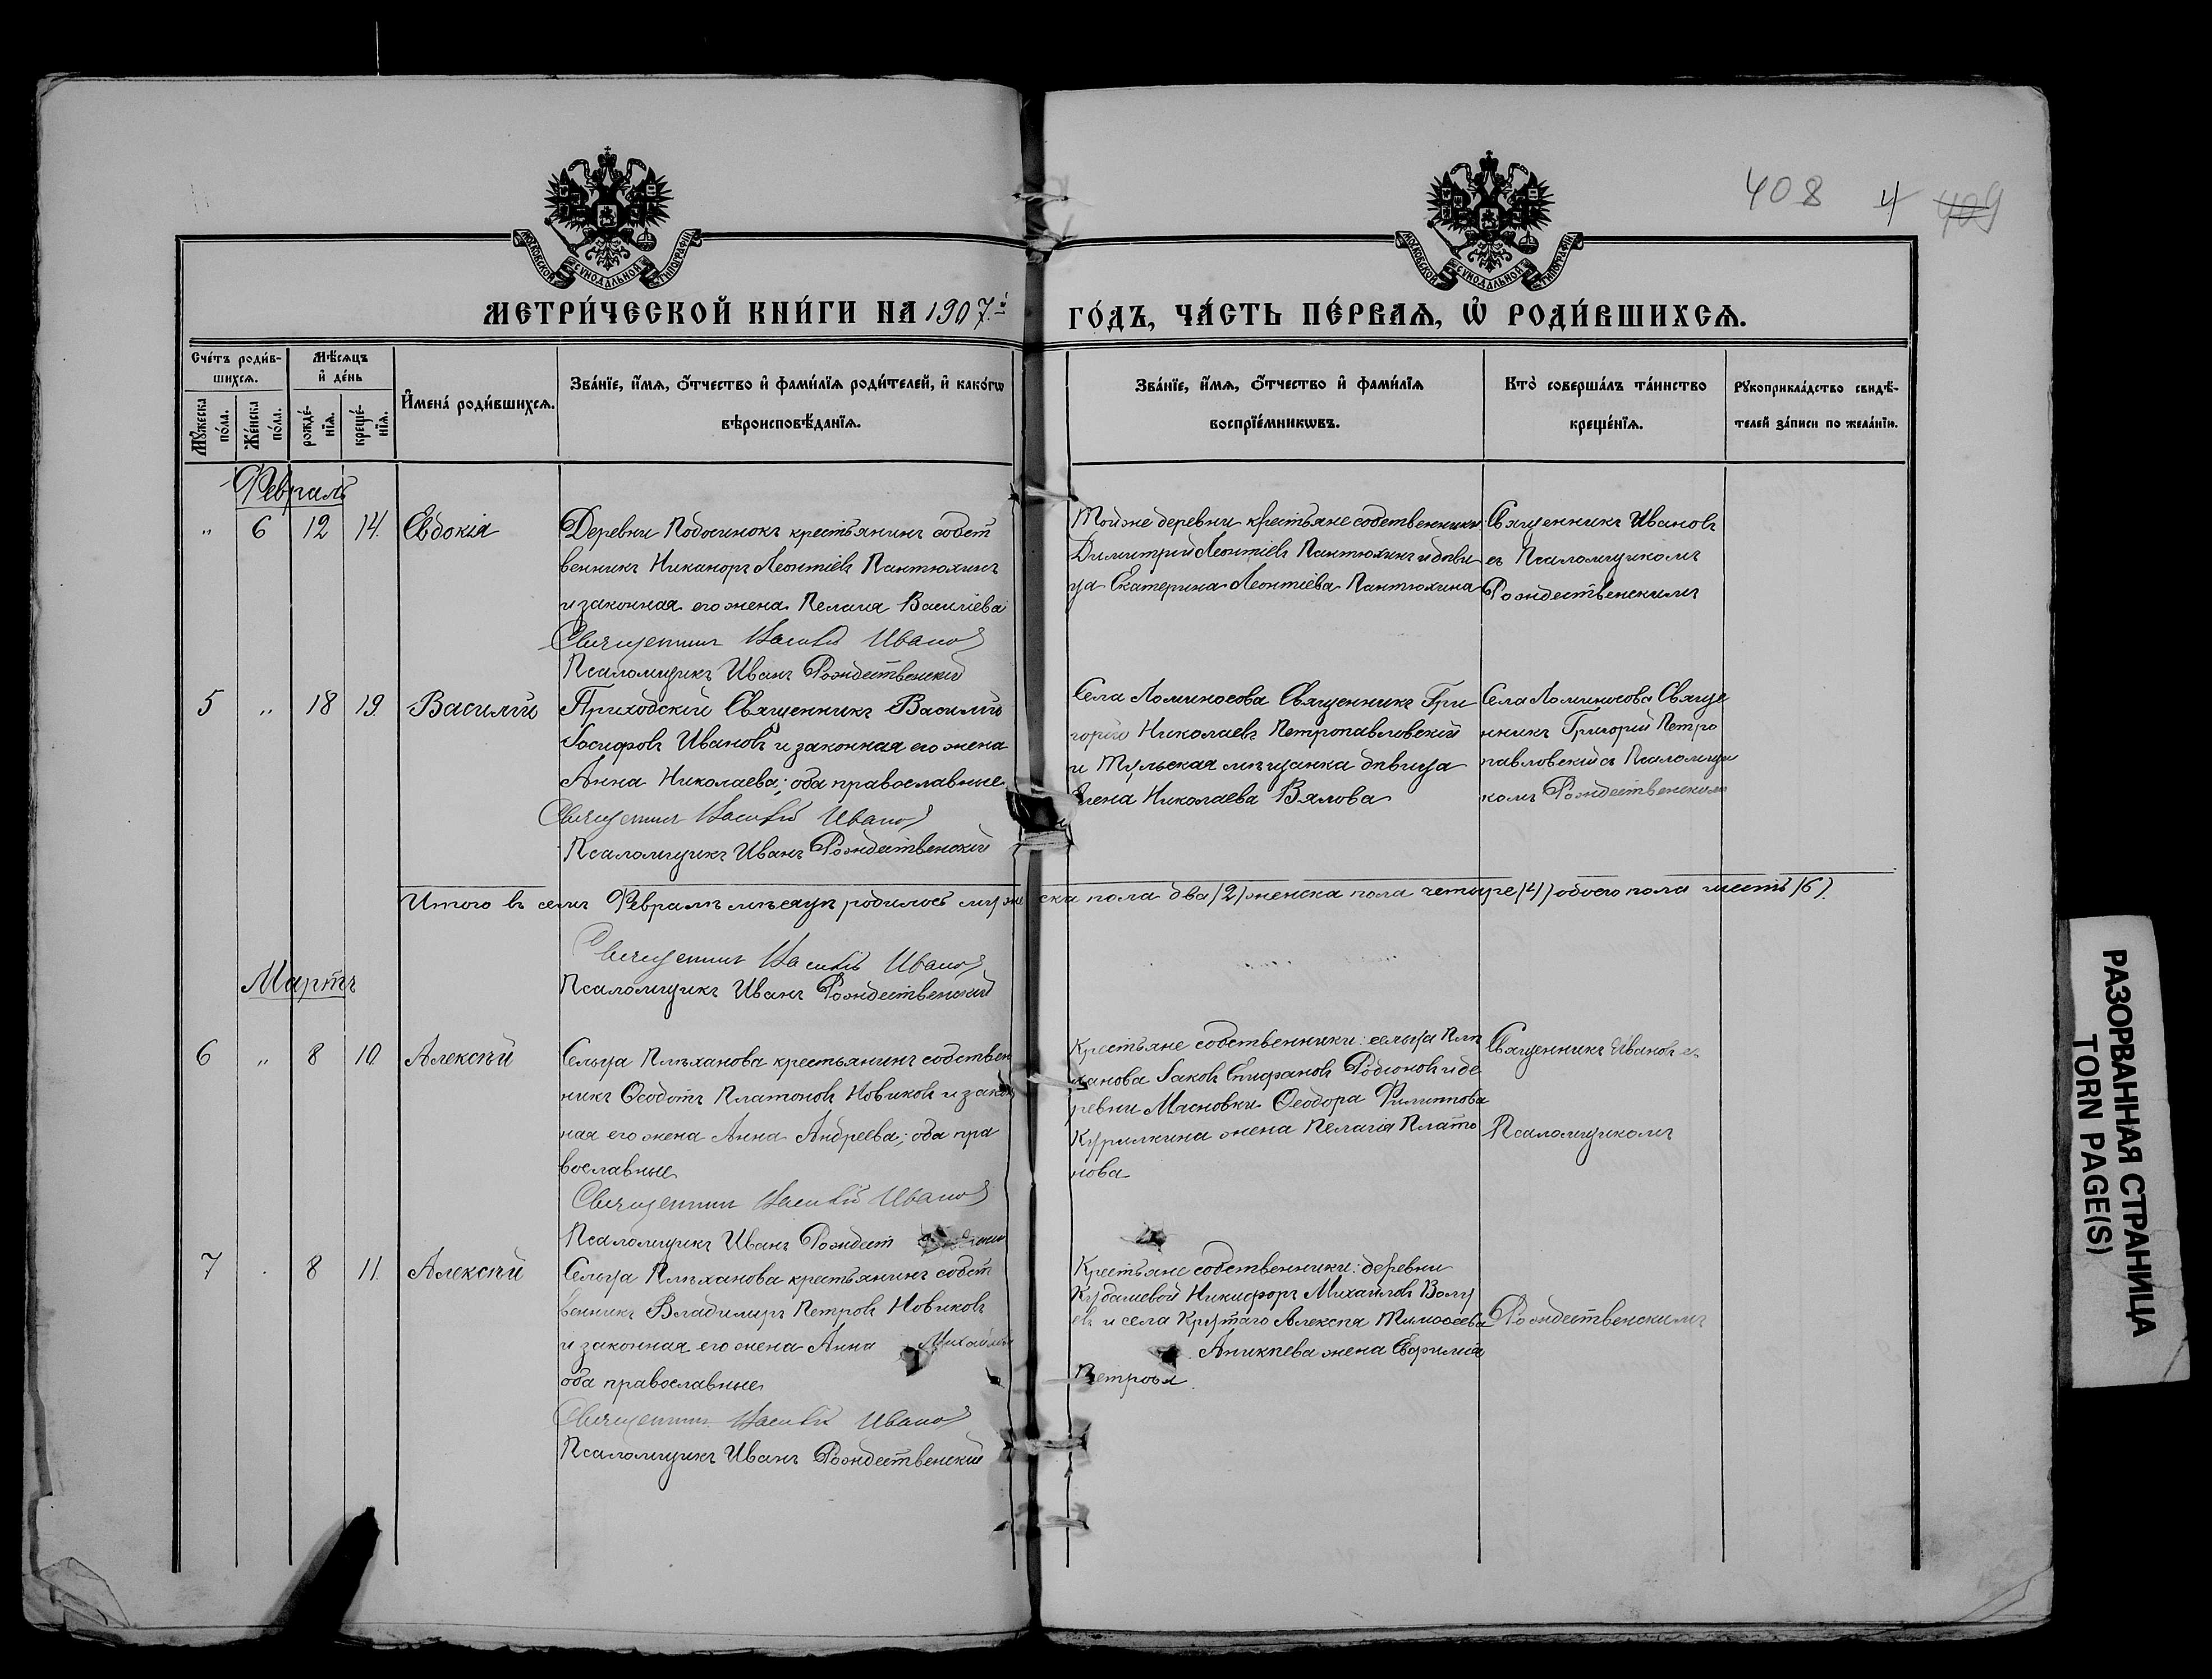 408 4 409
МОСКОВСКОЙ СѴНОДАЛЬНОЙ ТИПОГРАФІИ
МОСКОВСКОЙ СѴНОДАЛЬНОЙ ТИПОГРАФІИ
МЕТРИ́ЧЕСКОЙ КНИ́ГИ НА 1907.й ГО́ДЪ, ЧА́СТЬ ПЕ́РВАѦ, Ѽ РОДИ́ВШИХСѦ.
Счéтъ роди́в-
шихсѧ.
Мꙋ́жеска
по́ла.
Же́нска
по́ла.
Мѣ́сѧцъ
и҆ де́нь
рожде́-
нїѧ.
креще́-
нїѧ.
И҆мена́ роди́вшихсѧ.
Зва́нїе, и҆́мѧ, ѻ҆́тчество и҆ фами́лїѧ роди́телей, и҆ како́гѡ
вѣроисповѣ́данїѧ.
Зва́нїе, и҆́мѧ, ѻ҆́тчество и҆ фами́лїѧ
воспрїе́мникѡвъ.
Кто̀ соверша́лъ та́инство
креще́нїѧ.
Рꙋкоприкла́дство свидѣ́-
телей за́писи по жела́нїю.
Февраль
" 6 12 14. Евдокія
Деревни Подосинокъ крестьянинъ собст
венникъ Никаноръ Леонтіевъ Пантюхинъ
и законная его жена Пелагия Василіева
Священникъ Василій Ивановъ
Псаломщикъ Иванъ Рождественскій
Тойже деревни крестьяне собственники
Димитрий Леонтіевъ Пантюхинъ и дѣви
ца Екатерина Леонтіева Пантюхина
Священникъ Ивановъ
съ Псаломщикомъ
Рождественскимъ
5 " 18 19. Василий
Приходскій Священникъ Василий
Іосифовъ Ивановъ и законная его жена
Анна Николаева; оба православные
Священникъ Василій Ивановъ
Псаломщикъ Иванъ Рождественскій
Села Ломиносова Священникъ Гри
горий Николаевъ Петропавловскій
и Тульская мѣщанка дѣвица
Елена Николаева Вялова
Села Ломиносова Свяще
нникъ Григорій Петро
павловскій съ Псаломщи
комъ Рождественским
Итого въ семъ Февралѣ мѣсяцѣ родилось мужеска пола два (2) женска пола четыре (4) обоего пола шесть (6).
Священникъ Василій Ивановъ
Псаломщикъ Иванъ Рождественский
Мартъ
6 " 8 10. Алексѣй
Сельца Плѣханова крестьянинъ собствен
никъ Ѳеодотъ Платоновъ Новиковъ и закон
ная его жена Анна Андреева; оба пра
вославные
Священникъ Василій Ивановъ
Псаломщикъ Иванъ Рождественский
Крестьяне собственники: сельца Плѣ
ханова Іаковъ Епифановъ Родіоновъ и де
ревни Масновки Ѳеодора Филиппова
Курилкина жена Пелагия Плато
нова
Священникъ Ивановъ съ
Псаломщикомъ
7 . 8 11. Алексѣй
Сельца Плѣханова крестьянинъ собст
венникъ Владимиръ Петровъ Новиковъ
и законная его жена Анна Михайлова
оба православные.
Священникъ Василій Ивановъ
Псаломщикъ Иванъ Рождественский
Крестьяне собственники: деревни
Кудашевой Никифоръ Михайловъ
и села Крутаго Алексѣя Тимоѳеева
Аникѣева жена
Петрова.
Рождественскимъ
РАЗОРВАННАЯ СТРАНИЦА
TORN PAGE(S)